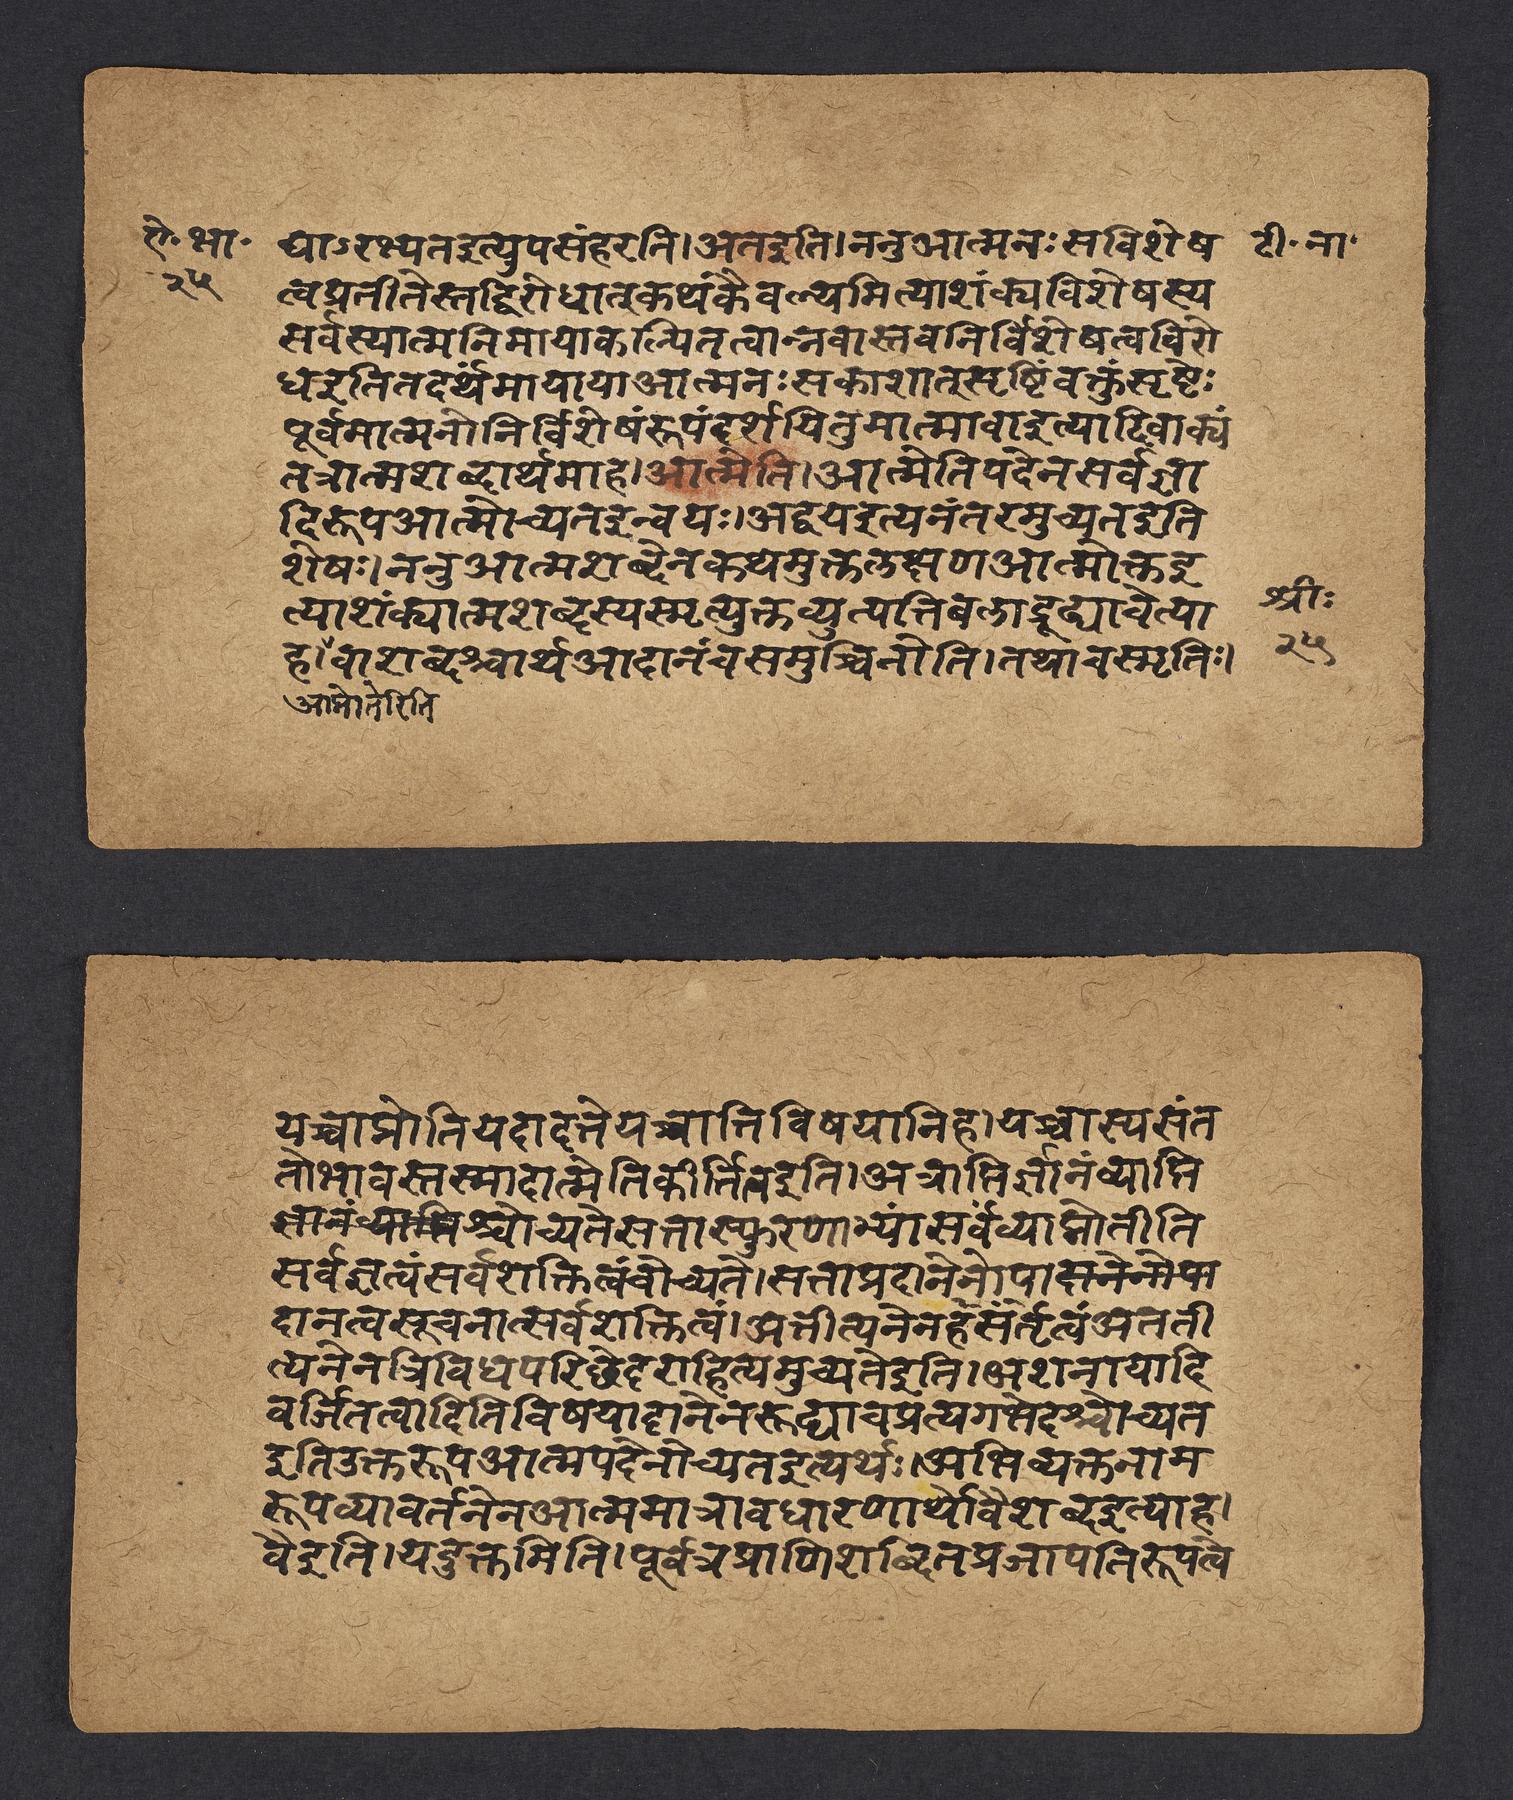 ऐ·भा· द्याऽरभ्यतइत्युपसंहरति।अतइति।ननुआत्मनःसविशेष टी·ना·
२५ त्वप्रतीतेस्तद्विरोधात्कथंकैवल्यमित्याशंक्यविशेषस्य
सर्वस्यात्मनिमायाकल्पितत्वान्नवास्तवनिर्विशेषत्वविरो
धइतितदर्थंमायायाआत्मनःसकाशात्सृष्टिंवक्तुंसृष्टेः
पूर्वमात्मनोनिर्विशेषंरूपंदर्शयितुमात्मावाइत्यादिवाक्यं
तत्रात्मशब्दार्थमाह।आत्मेति।आत्मेतिपदेनसर्वज्ञा
दिरूपआत्मोच्यतइन्वयः।अद्वयइत्यनंतरमुच्यतइति
शेषः।ननुआत्मशब्देनकथमुक्तलक्षणआत्मोक्तइ
त्याशंक्यात्मशब्दस्यस्मृत्युक्तव्युत्पत्तिबलाद्रूढ्यावेत्या श्रीः
ह।वाशब्दश्चार्थआदानंचसमुच्चिनोति।तथाचस्मृतिः। २५
आप्नोतेरिति
यच्चाप्नोतियदादत्तेयच्चात्तिविषयानिह।यच्चास्यसंत
तोभावस्तस्मादात्मेतिकीर्त्तितइति।अत्राप्तिर्ज्ञानंव्याप्ति
ज्ञानंव्याप्तिश्चोच्यतेसत्तास्फुरणाभ्यांसर्वंव्याप्नोतीति
सर्वज्ञत्वंसर्वशक्तित्वंचोच्यते।सत्ताप्रदानेनोपादानेनोपा
दानत्वसूचनात्सर्वशक्तित्वं।अत्तीत्यनेनहंसंर्तृत्वंअतती
त्यनेनत्रिविधपरिछेदराहित्यमुच्यतेइति।अशनायादि
वर्जितत्वादितिविषयादानेनरूढ्याचप्रत्यगभेदश्चोच्यत
इतिउक्तरूपआत्मपदेनोच्यतइत्यर्थः।अभिव्यक्तनाम
रूपव्यावर्तनेनआत्ममात्रावधारणार्थोवैशब्दइत्याह।
वैइति।यदुक्तमिति।पूर्वत्रप्राणिशब्दितप्रजापतिरूपत्वे